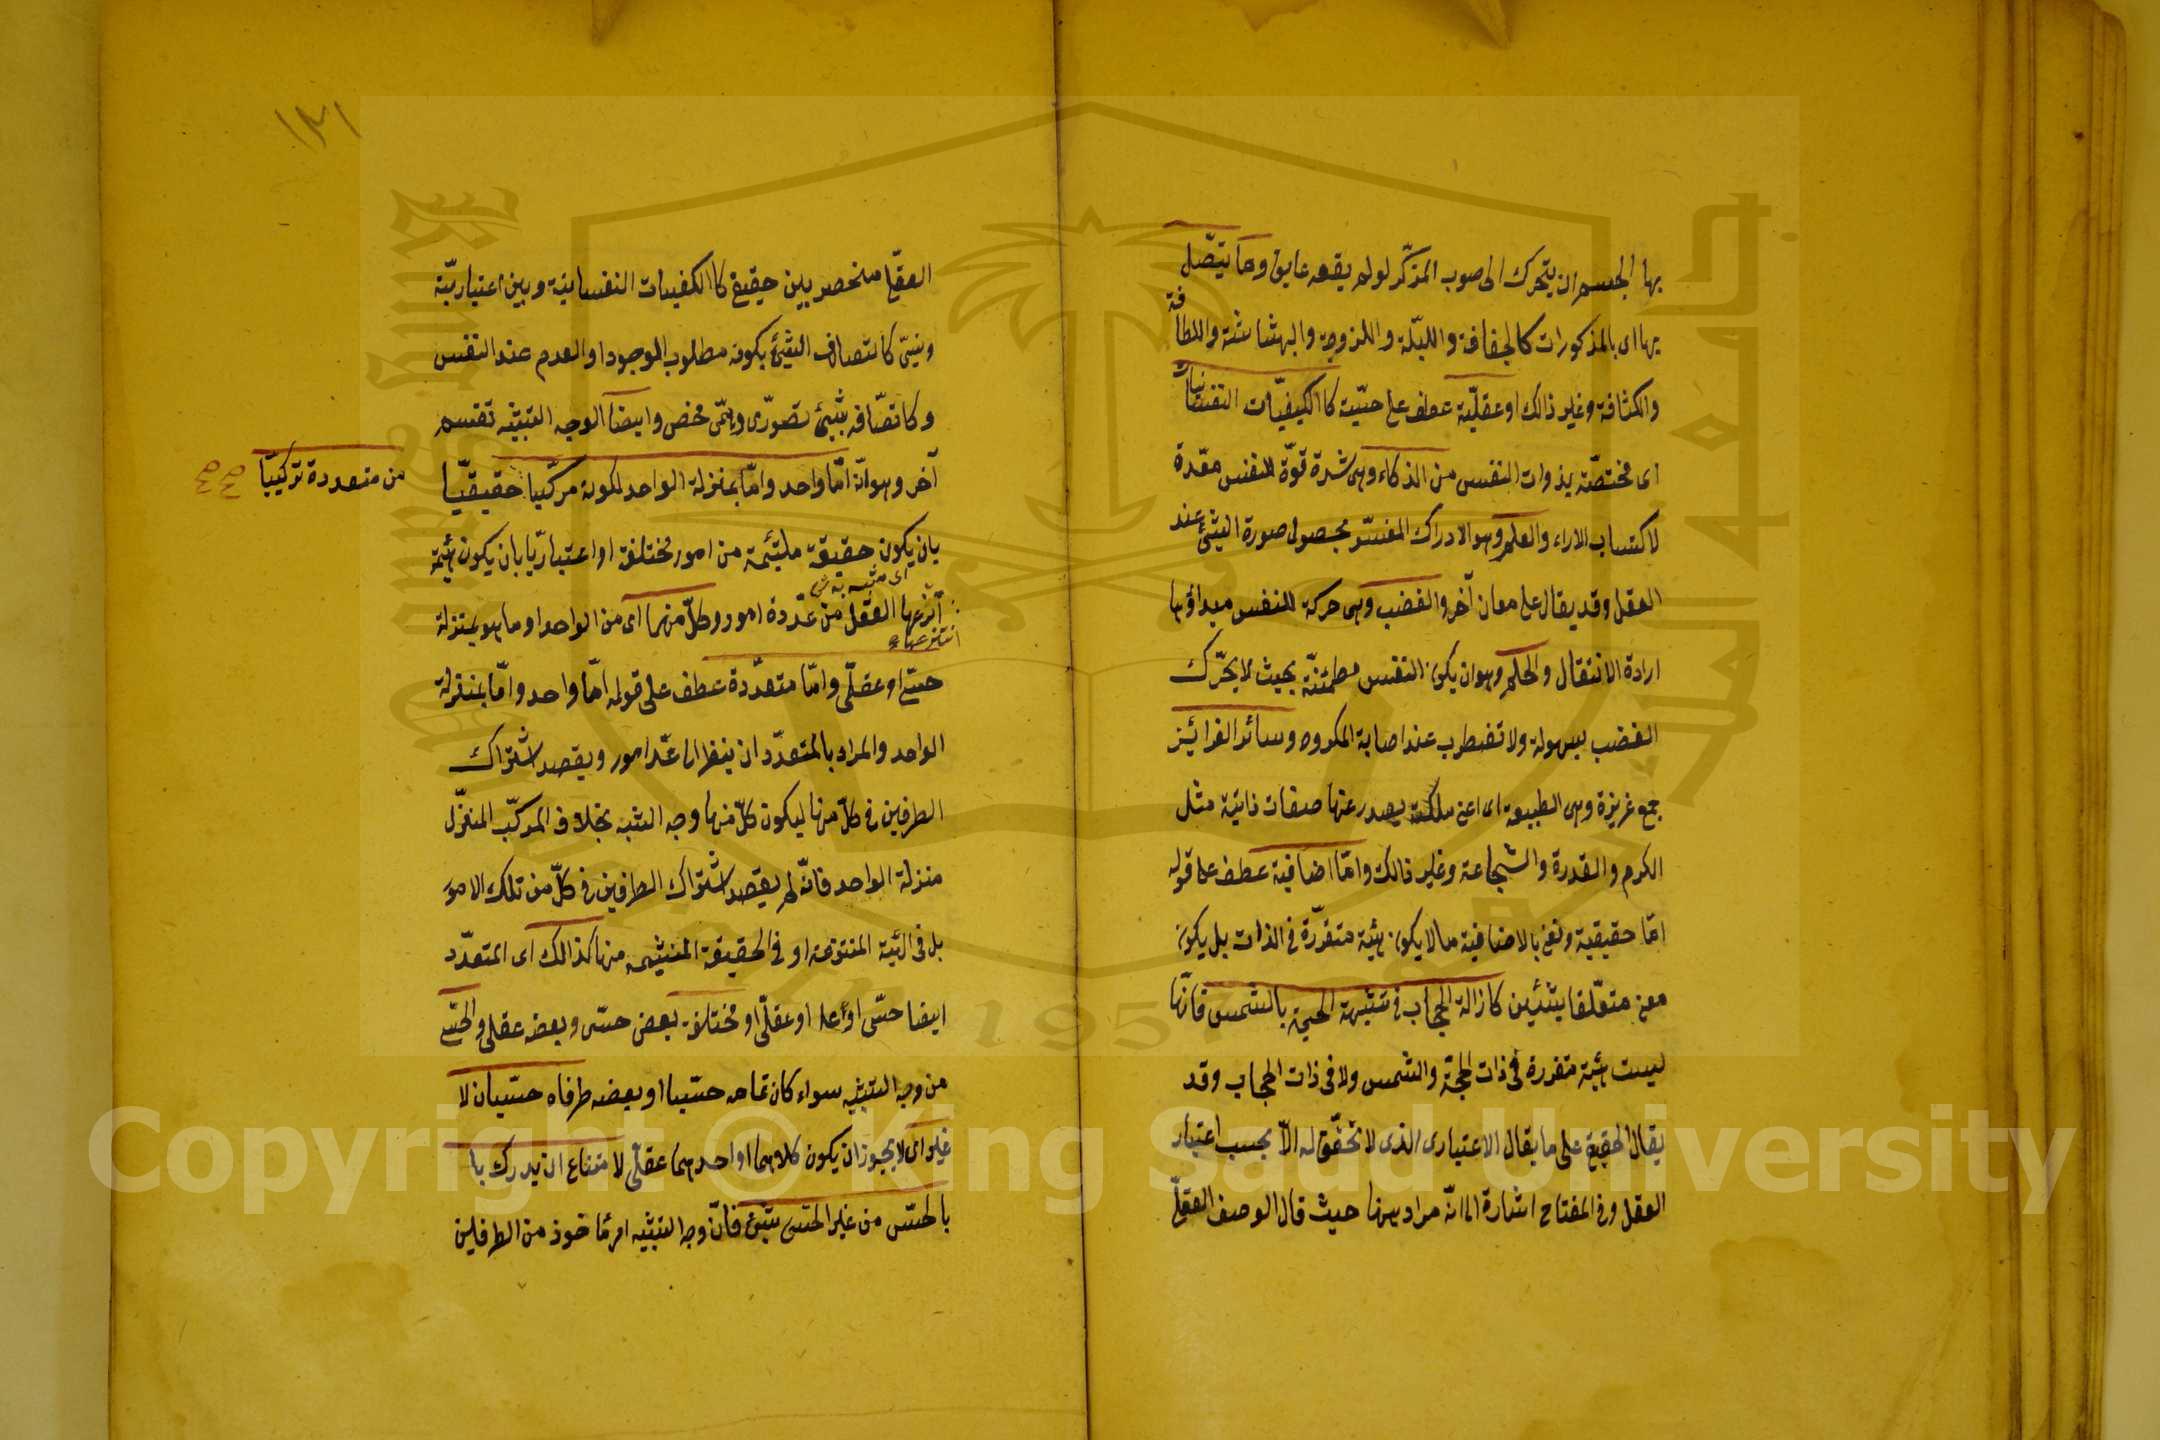 بها الجسم ان يتحرك الى صوب المركز لو لم يقعه عايق وما يتصل
بها اى بالمذكورات كالجفافة والبلّة واللزوجة والهشاشة واللطافة
والكثافة وغير ذالك او عقليّة عطف على حسّية كالكيفيّات النفسانيات
اى مختصّة بذوات النفس من الذكاء وهى شدة قوّة للنفس معدّة
لاكتساب الاراء والعلم وهو الادراك المفسّر بحصول صورة الشئ عند
العقل وقد يقال على معان آخر والغضب وهى حركة للنفس مبداؤها
ارادة الانتقال والحلم وهو ان يكون النفس مطمئنّة بحيث لا يحرّك
الغضب بسهولة ولا تضطرب عند اصابة المكروه وسائر الغرائيز
جمع غريزة وهى الطبيعة اى اعنى ملكة يصدر عنها صفات ذاتية مثل
الكرم والقدرة والشجاعة وغير ذالك وامّا اضافية عطف على قوله
امّا حقيقية ونعنى بالاضافية ما لا يكون هيئة متقرّرة فى الذات بل يكون
معنى متعلّقا بشئين كازالة الحجاب فى تشبيهة الحجة بالشمس فانّها
ليست هيئة متقررة فى ذات الحجة والشمس ولا فى ذات الحجاب وقد
يقال الحقيقى على ما يقال الاعتبارى الذى لا تحقّق له الّا بحسب اعتبار
العقل وفى المفتاح اشارة الى انّه مراد ههنا حيث قال الوصف العقلّى
١٣١
العقلّى منحصر بين حقيقى كالكفيات النفسانية وبين اعتباريّة
ونسبّى كاتصاف الشئ بكونه مطلوب الوجود او العدم عند النفس
وكاتصّافه بشئ تصوّرى وهمّى محض وايضا الوجه التشبيه تقسيم
آخر وهو انّه امّا واحد وامّا بمنزلة الواحد لكونه مركّبا حقيقيّا
من متعددة تركيبّا
بان يكون حقيقة ملتئمة من امور مختلفة او اعتباريّا بان يكون هيئة
اى مشبه به
انتزعها العقل من عدّدة امور وكلّ منهما اى من الواحد او ما هو بمنزلة
انتزعها
حسّى او عقلّى وامّا متعدّدة عطف على قوله امّا واحد وامّا بمنزلة
الواحد والمراد بالمتعدّد ان ينظر الى عدّ امور ويقصد اشتراك
الطرفين فى كلّ منها ليكون كلّ منها وجه الشبه بخلاف المركّب المنزّل
منزلة الواحد فانّه لم يقصد اشتراك الطرفين فى كلّ من تلك الامور
بل فى الهيئة المنتزعة او فى الحقيقة الملتئمة منها كذالك اى المتعدّد
ايضا حسّى او عقلّى او مختلف بعض حسّى وبعض عقلى والحسّى
من وجه التشبيه سواء كان تمامه حسّيا او بعضه طرفاه حسّيان لا
غير اى لا يجوز ان يكون كلاهما او احدهما عقلّى لامتناع ان يدرك با
بالحسّ من غير الحسّى شئ فانّ وجه التشبيه امر ماخوذ من الطرفين
Copyright © King Saud University
King Saud University
جامعة الملك سعود
1957